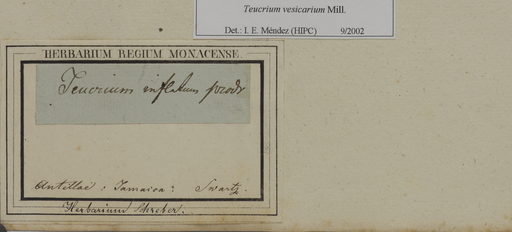 Teucrium vesicarium Mill.
Det.: I. E. Méndez (HIPC) 9/2002
HERBARIUM REGIUM MONACENSE.
Teucrium inflatum prodr
Antillae: Jamaica: Swartz.
Herbarium Schreber.